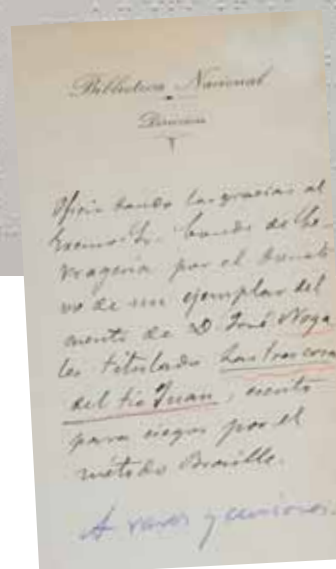 Biblioteca Nacional
Dirección
Oficio dando las gracias al
Excmo. Sr. Conde de Ce-
drageria por el donati-
vo de un ejemplar del
cuento de D. José Noga-
les titulado Las tres cosas
del tío Juan, escrito
para ciegos por el
método Braille.
A varios y curiosos.